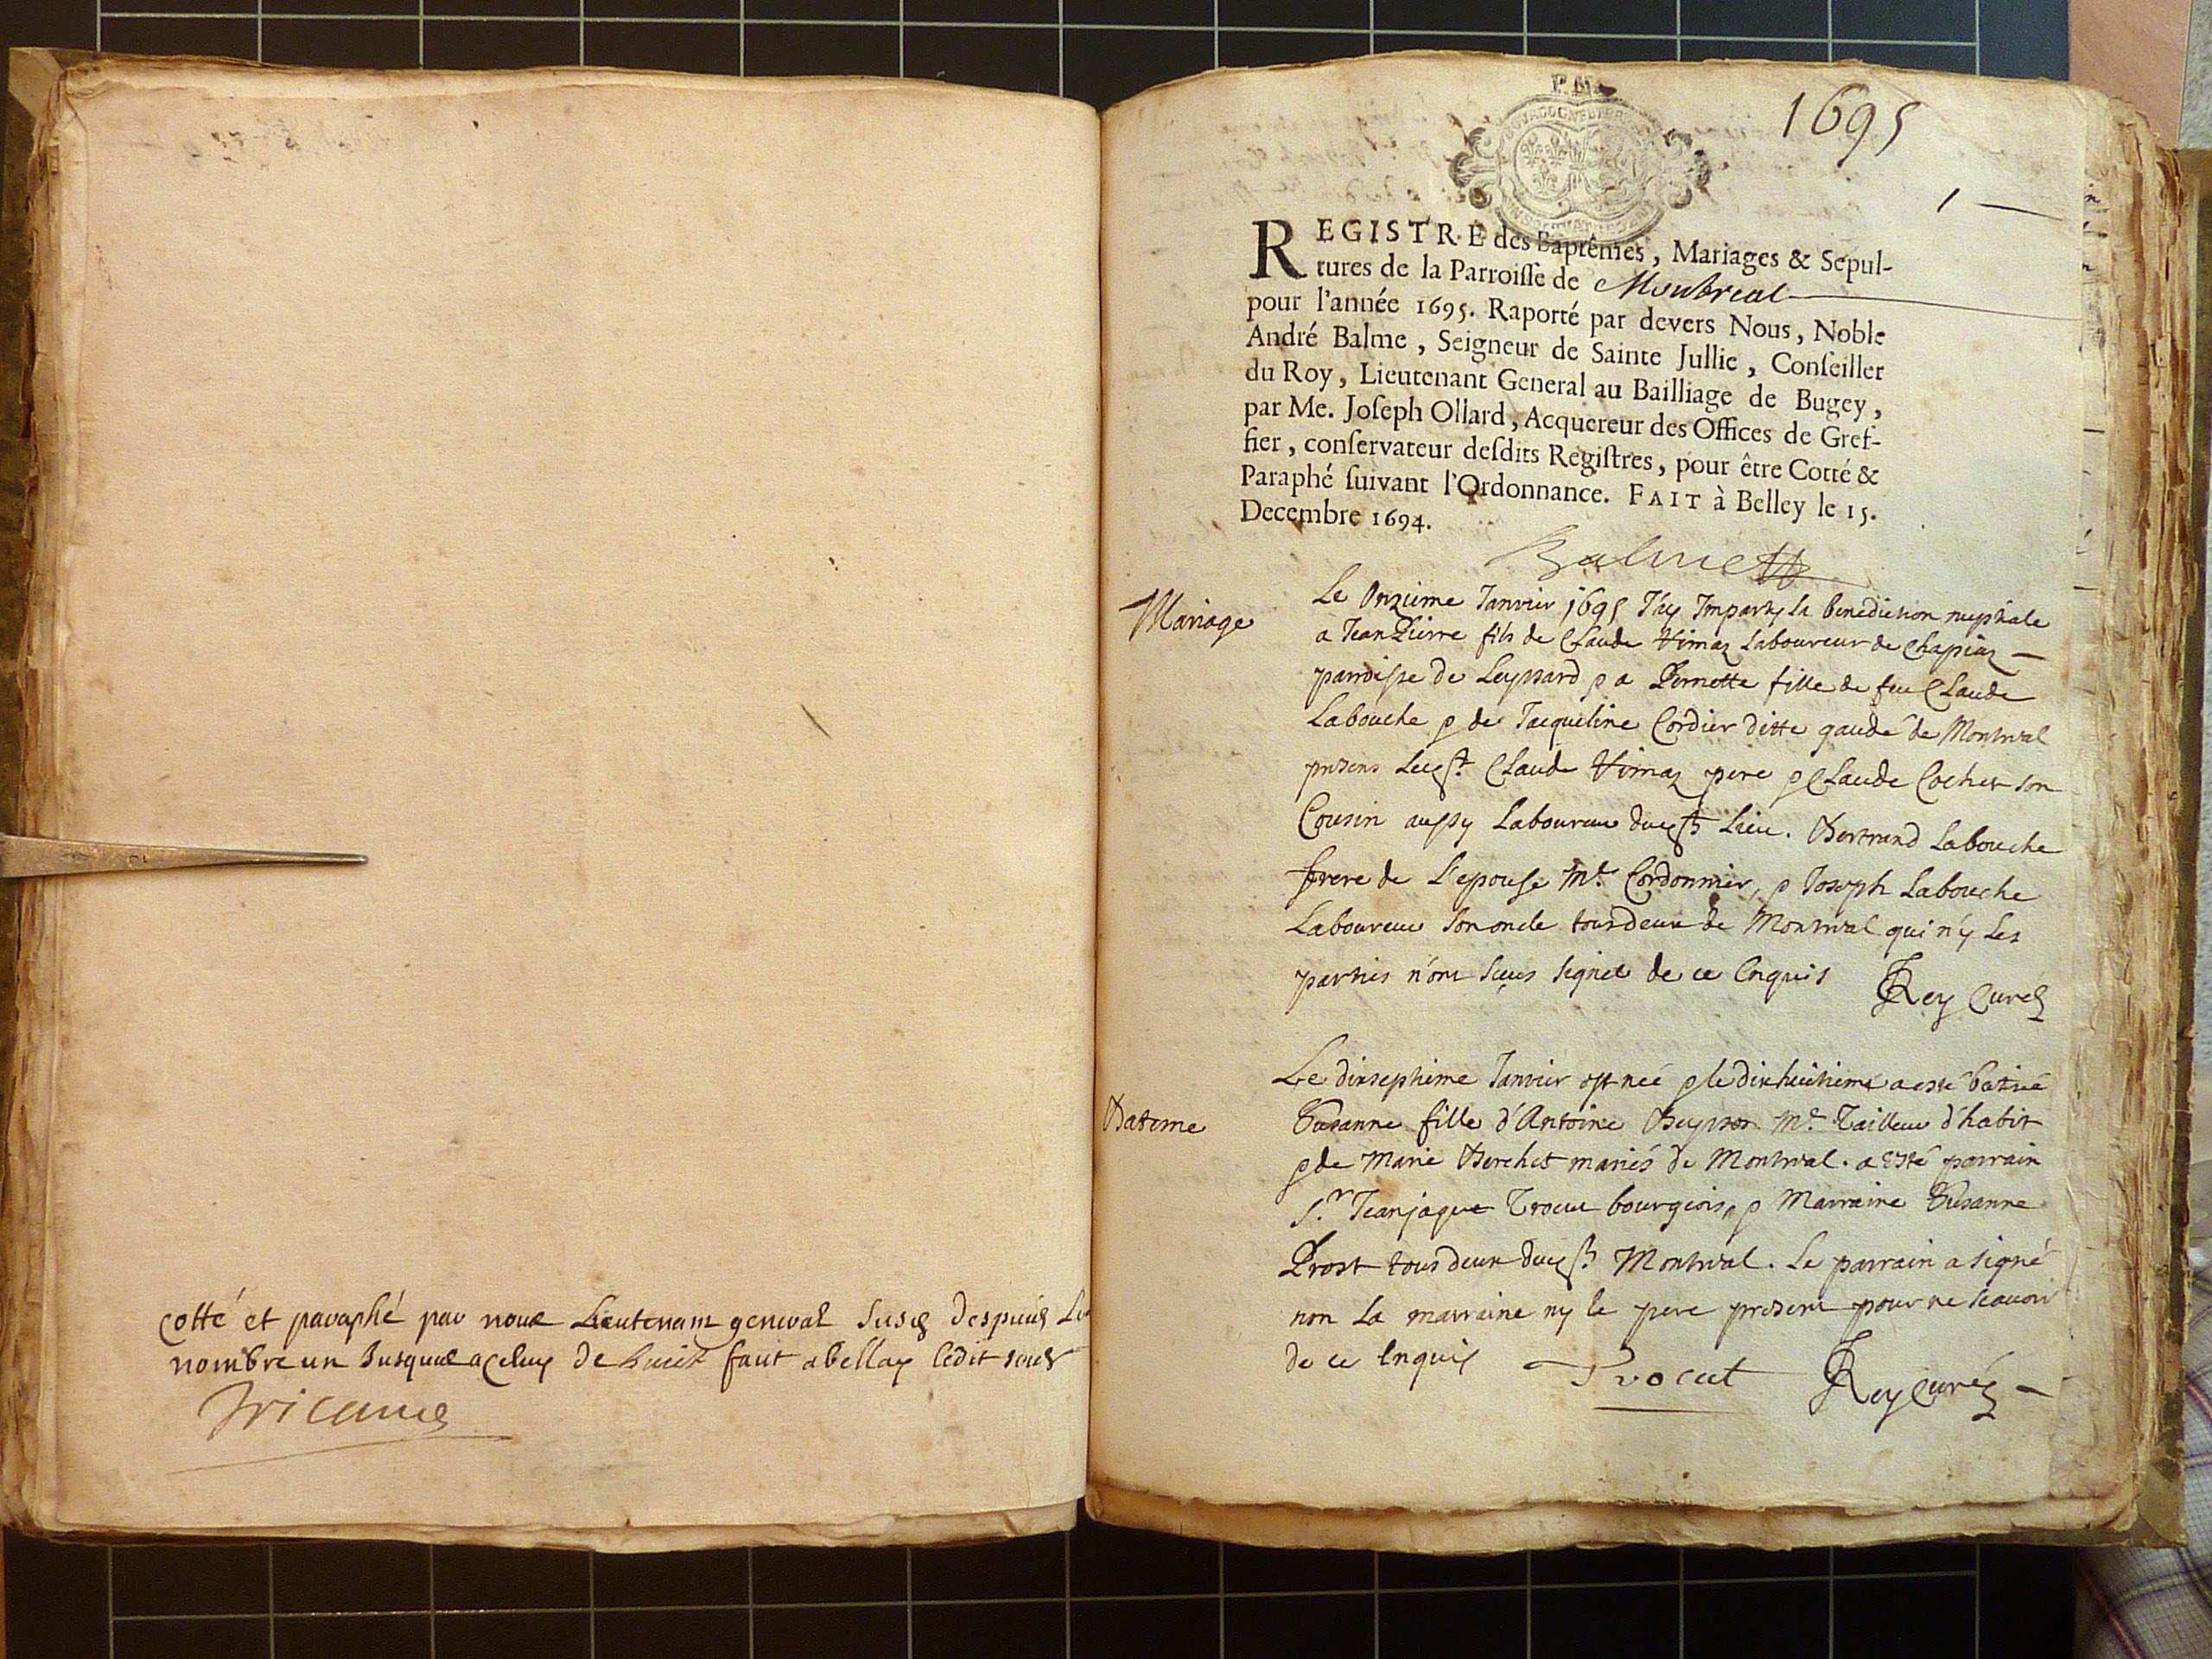 cotté et paraphé par nous Lieutenant general susd despuis Le
nombre un Jusques a celuy de huict fait a bellay ledit jour
Tricaud
1695
1
REGISTRE des Baptêmes, Mariages & Sepul-
tures de la Parroisse de Montreal
pour l'année 1695. Raporté par devers Nous, Noble
André Balme, Seigneur de Sainte Jullie, Conseiller
du Roy, Lieutenant General au Bailliage de Bugey,
par Me. Joseph Ollard, Acquereur des Offices de Gref-
fier, conservateur desdits Registres, pour être Cotté &
Paraphé suivant l'Ordonnance. FAIT à Belley le 15.
Decembre 1694.
Balme
Mariage
Le Onzieme Janvier 1695 J'ay Imparty la benediction nuptiale
a Jean Pierre fils de Claude Vimaz Laboureur de Chapiaz
parroisse de Leyssard & a Pernette fille de feu Claude
Labouche & de Jacqueline Cordier ditte gaude de Montreal
presens Claude Vimaz pere & Claude Cochet son
Cousin aussy Laboureur Lieu. Bertrand Labouche
frere de L'epouse Me. Cordonnier, & Joseph Labouche
Laboureur son oncle tous deux de Montreal qui n'y Les
parties n'ont sceus signer de ce Enquis Rey Curé
Bateme
Le dixseptieme Janvier est née & le dixhuitieme a esté batisé
Susanne fille d'Antoine Me. Tailleur d'habit
& de Marie Berchet mariés de Montreal. a esté parrain
Sr. Jeanjaque Trocu bourgeois, & Marraine Susanne
Prost tous deux Montreal. Le parrain a signé
non La marraine ny le pere present pour ne scavoir
de ce Enquis Trocut Rey Curé